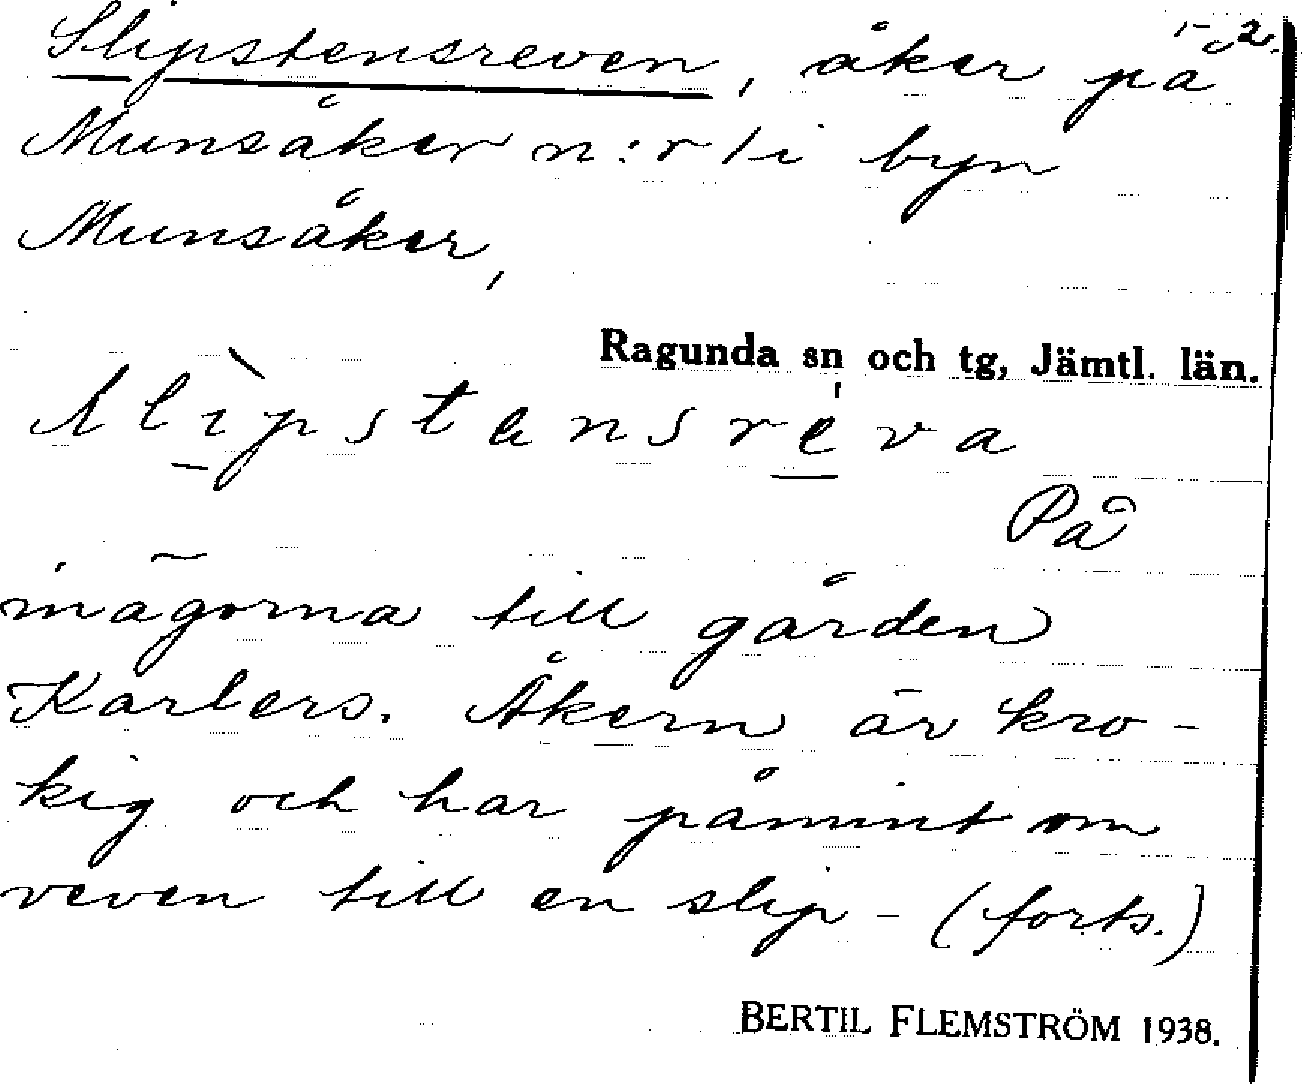 1-2.
Slipstensreven, åker på
Munsåker n:r 1 i byn
Munsåker,
Ragunda sn och tg, Jämtl. län.
slìpstensréva
På
inägorna till gården
Karlers. Åkern är kro-
kig och har påmint om
veven till en slip- (forts.)
BERTIL FLEMSTRÖM 1938.